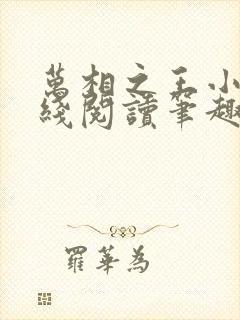 萬相之王小
綫閱讀筆趣
羅華為